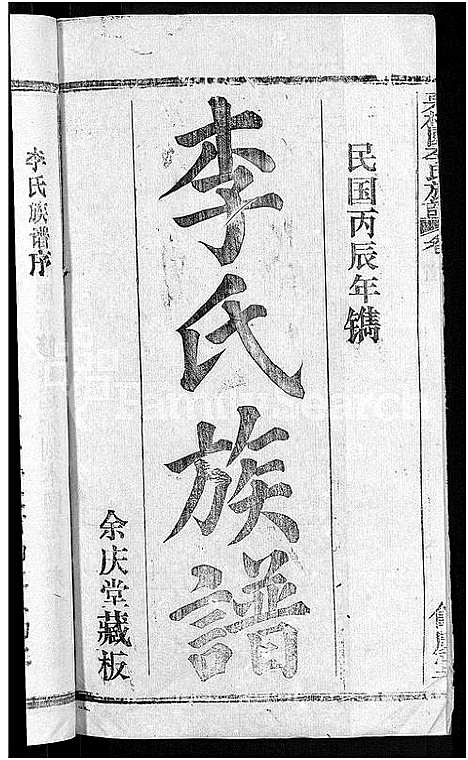 民国丙辰年镌
李氏族譜
余庆堂藏板
李氏族谱序